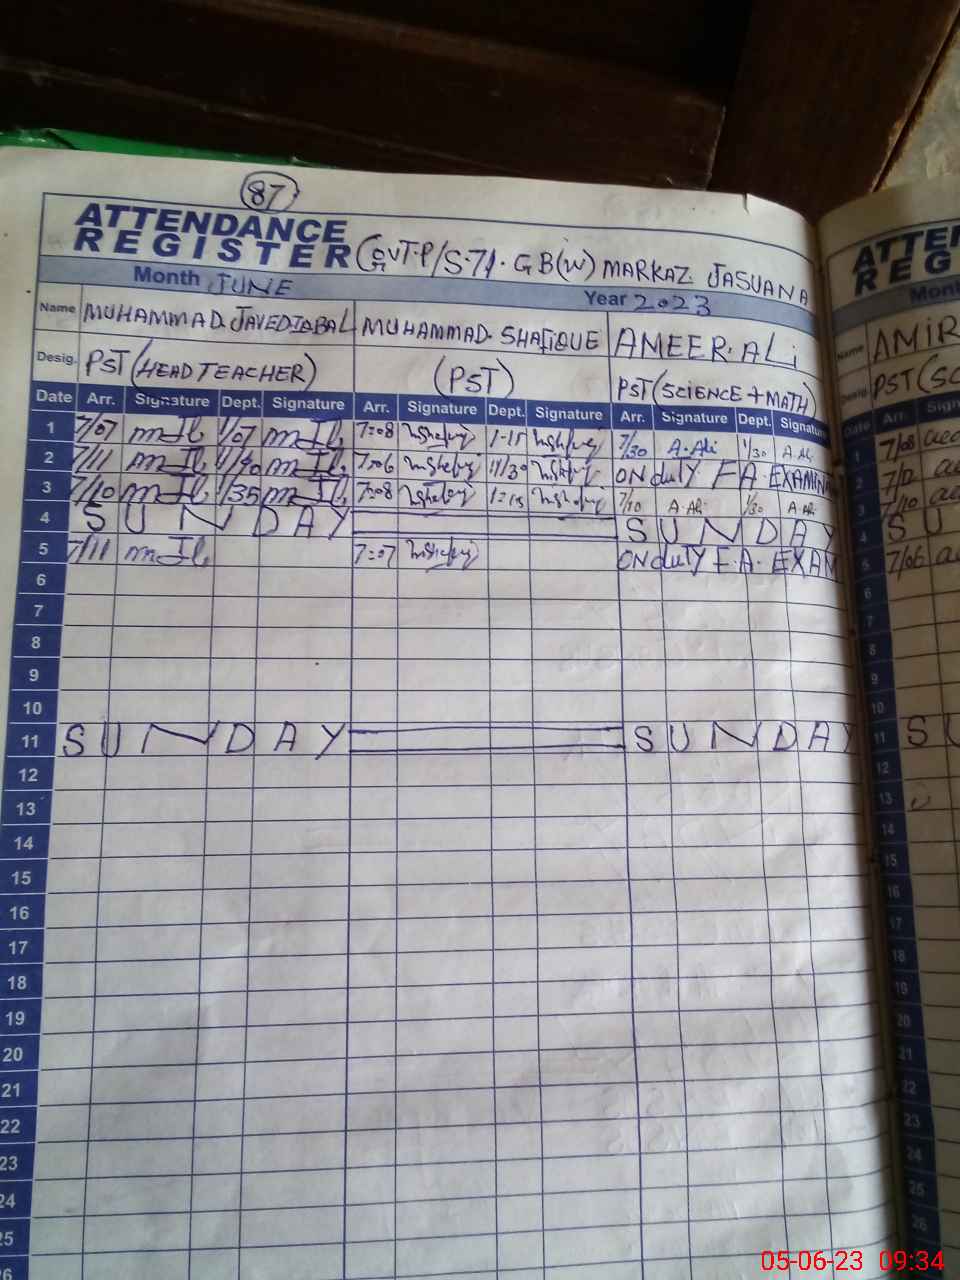 87
ATTENDANCE
REGISTER GOVT.P/S.71.GB(W) MARKAZ. JASUANA
Month JUNE Year 2023
Name MUHAMMAD.JAVEDIQBAL MUHAMMAD.SHAFIQUE AMEER.ALi
Desig. PST(HEAD TEACHER) (PST) PST(SCIENCE+MATH)
Date Arr. Signature Dept. Signature Arr. Signature Dept. Signature Arr. Signature Dept. Signature
1 7/07 1/07 7=08 1-15 7/30 A.Ali 1/30 A.Ali
2 7/11 11/40 7=06 11/30 ON duty F A. EXAMINA
3 7/10 1/35 7=08 1=15 7/30 A.Ali 1/30 A.Ali
4 SUNDAY SUNDAY
5 7/11 7=07 ON duty F.A. EXAM
6
7
8
9
10
11 SUNDAY SUNDAY
12
13
14
15
16
17
18
19
20
21
22
23
24
25
26
ATTEN
REG
Mont
Name AMIR
Desig. PST(SC
Date Arr. Sign
1 7/08
2 7/12
3 7/10
4 SU
5 7/06
6
7
8
9
10
11 SU
12
13
14
15
16
17
18
19
20
21
22
23
24
25
26
05-06-23 09:34